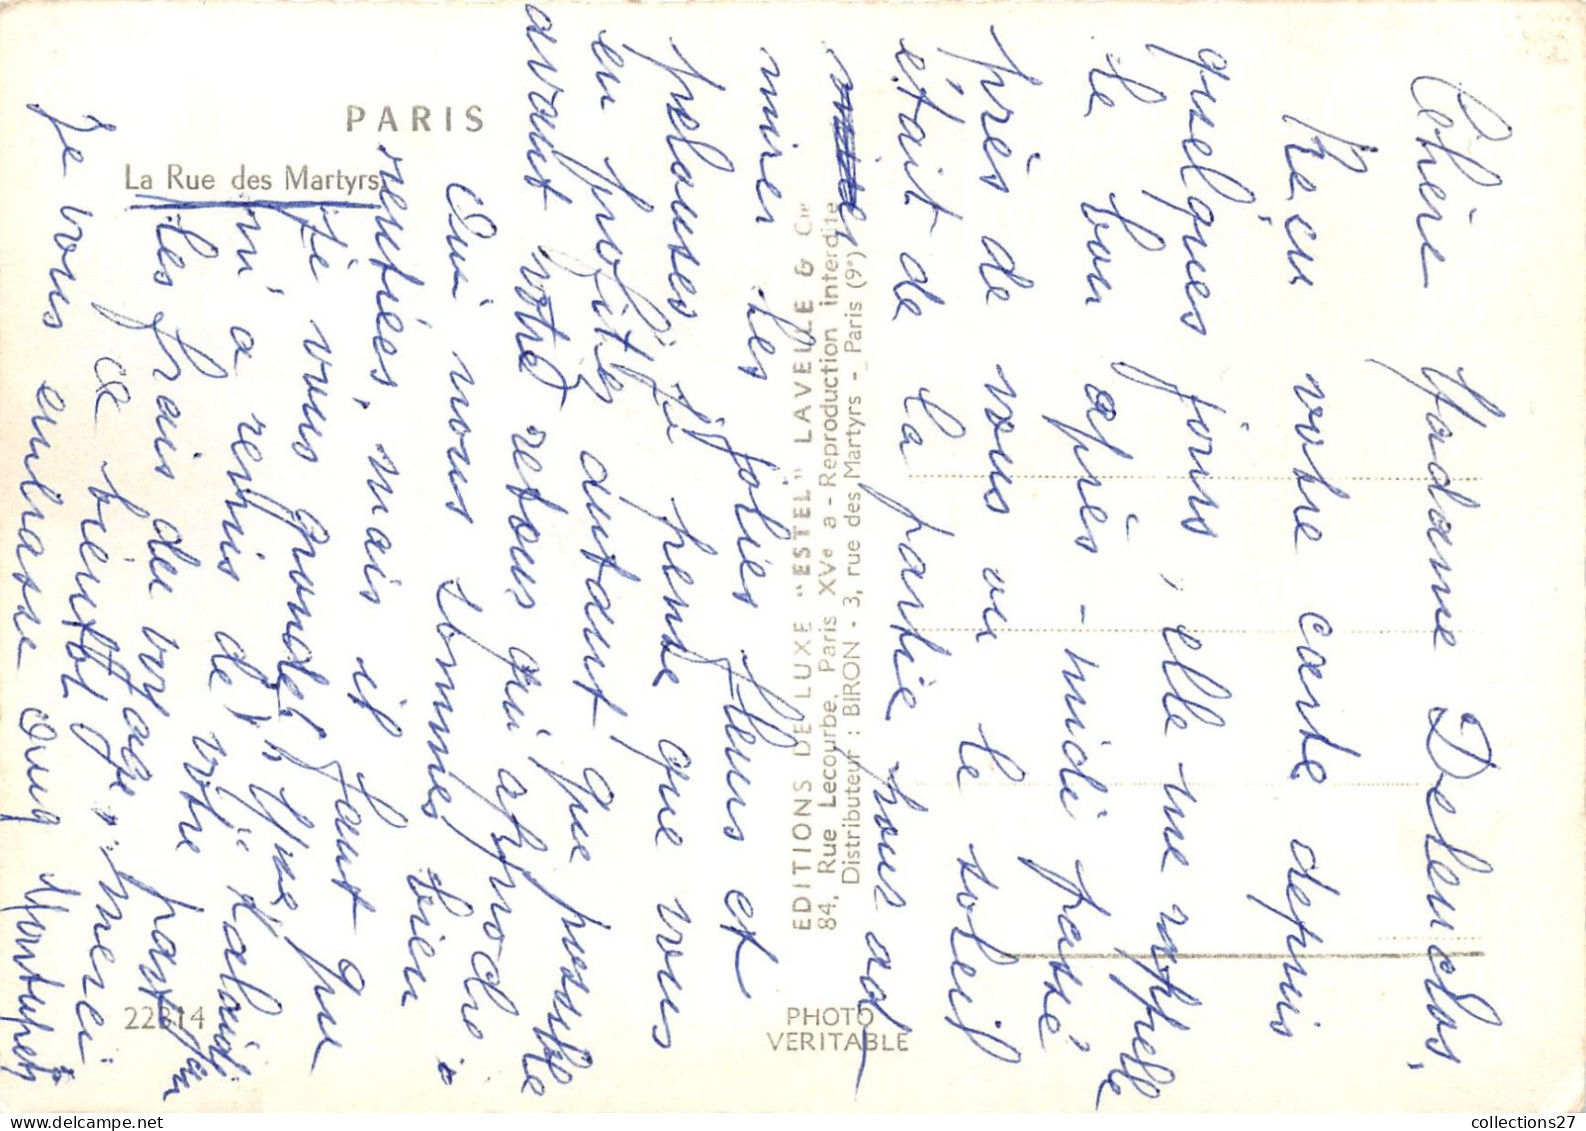 PARIS
La Rue des Martyrs
EDITIONS DE LUXE "ESTEL" LAVELLE & Cie
84, Rue Lecourbe, Paris XVe a - Reproduction interdite
Distributeur : BIRON - 3, rue des Martyrs - Paris (9e)
22814
PHOTO
VERITABLE
Chère Madame Deleuclos,
Reçu votre carte depuis
quelques jours, elle me rappelle
le bon après-midi passé
près de vous ou le soleil
était de la partie pour ad
mirer les jolies fleurs et
pelouses, je pense que vous
en profitez autant que possible
avant votre retour qui approche.
Oui nous sommes bien
rentrées, mais il faut que
je vous gronde, Yves
m'a remis de votre part
les frais du voyage, merci
à bientôt
Je vous embrasse
collections27